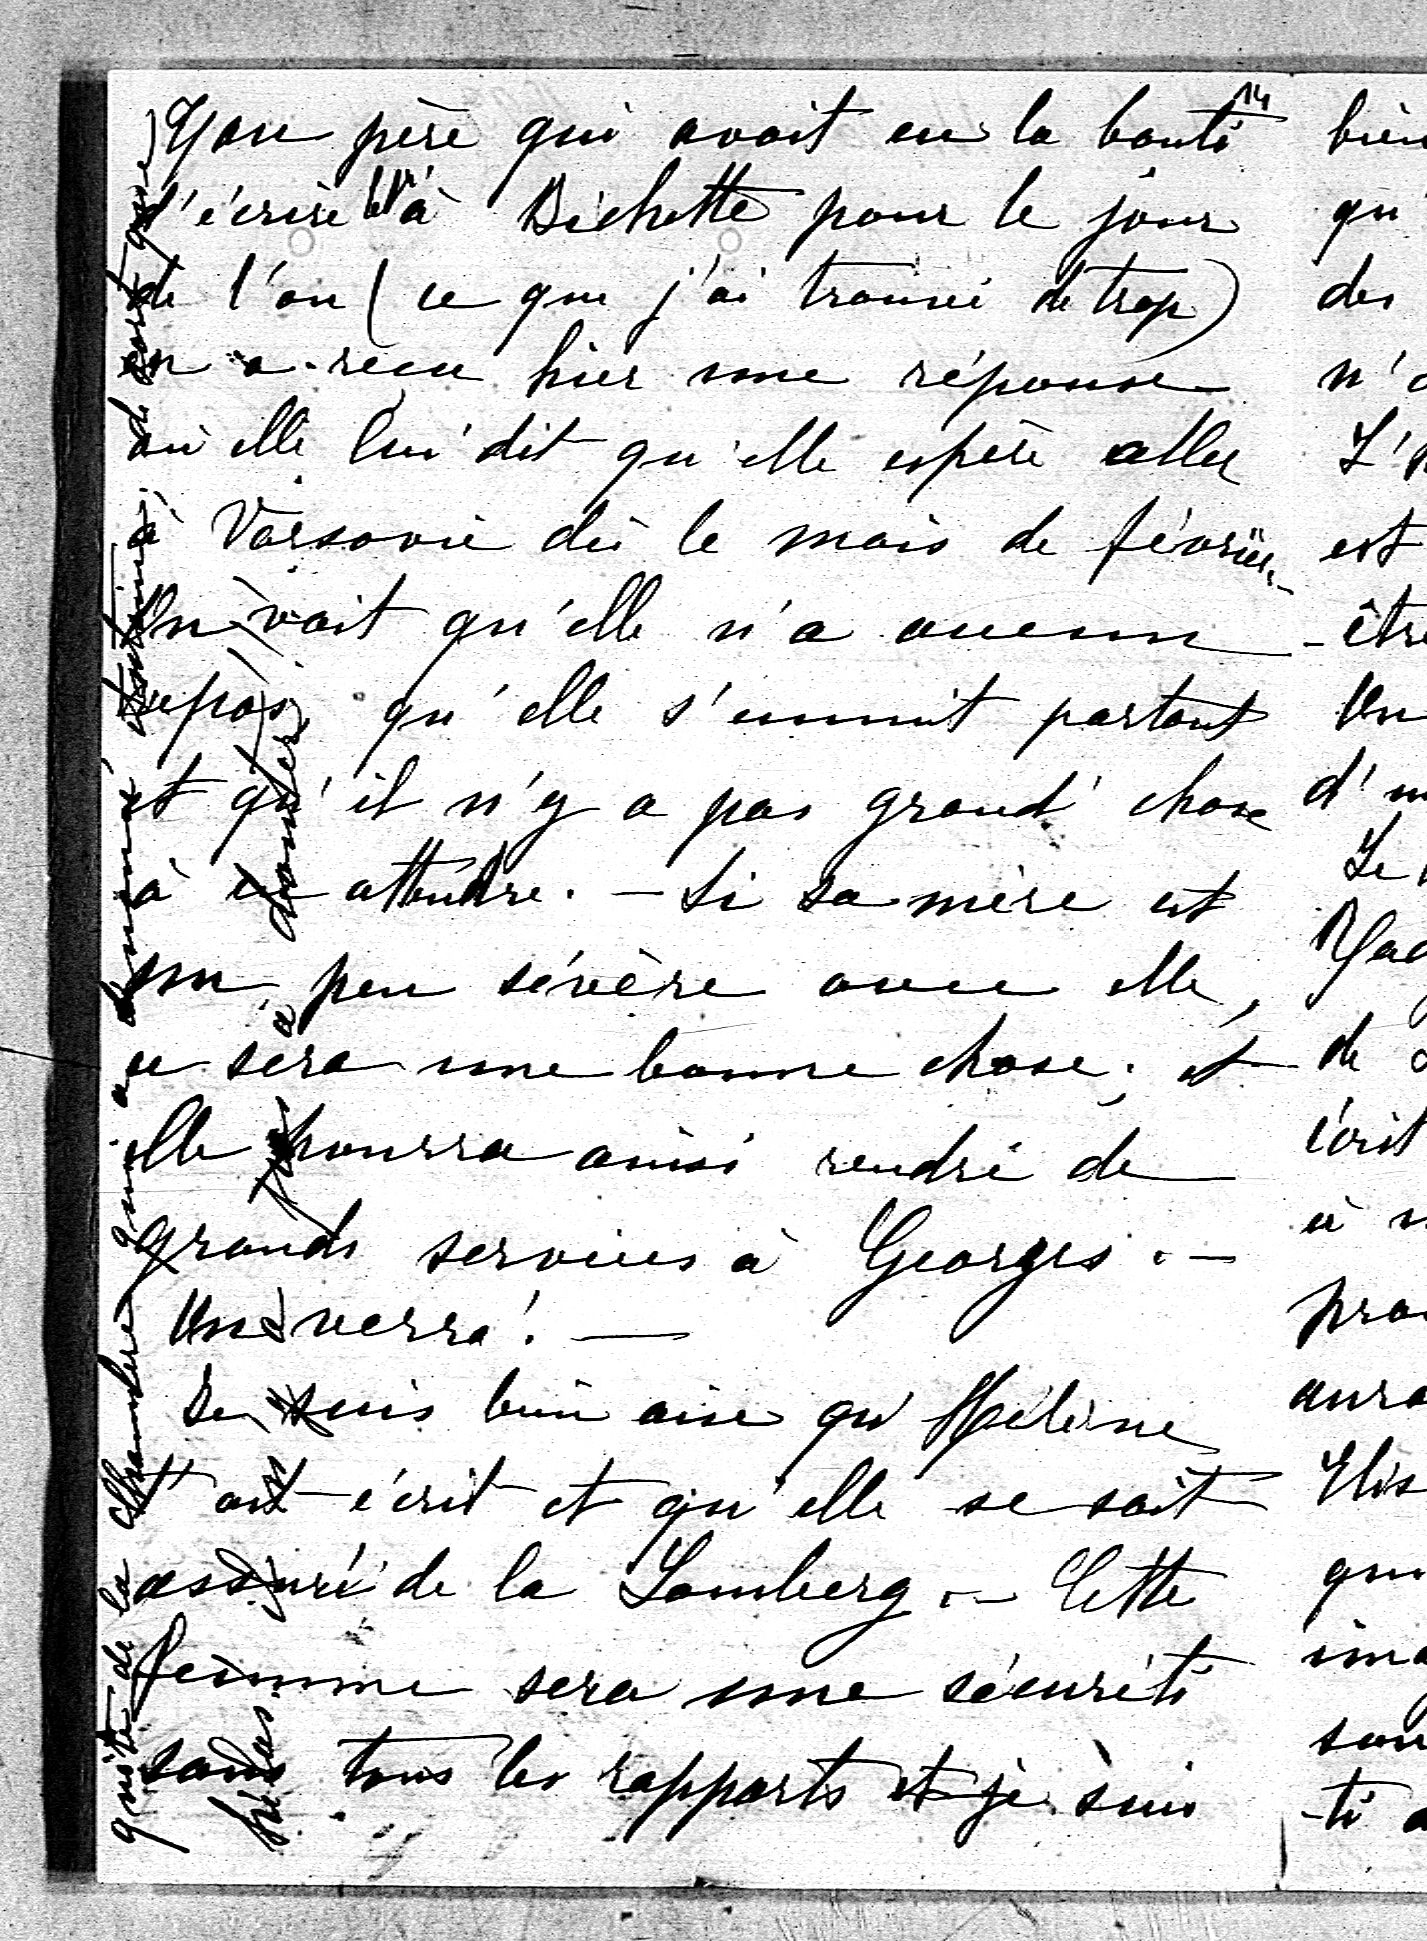 14
Ton père qui avait eu la bonté
d'écrire à Bichette pour le jour
de l'an (ce que j'ai trouvé de trop)
en a reçu hier une réponse
où elle lui dit qu'elle espère aller
à Varsovie dès le mois de février.
On voit qu'elle n'a aucun
repos, qu'elle s'ennuit partout
et qu'il n'y a pas grand' chose
à en attendre. — Si sa mère est
un peu sévère avec elle,
ce sera une bonne chose; et
elle pourra ainsi rendre de
grands services à Georges. —
On verra! —
Je suis bien aise qu'Hélène
t'ait écrit et qu'elle se soit
assuré de la Lomberg. — Cette
femme sera une sécurité
sous tous les rapports et je suis
quite de la chambre qui a
de sorte que
à donner
bien
qu'
des
est
-être
On
de
écrit
à
Elis
qu
-té